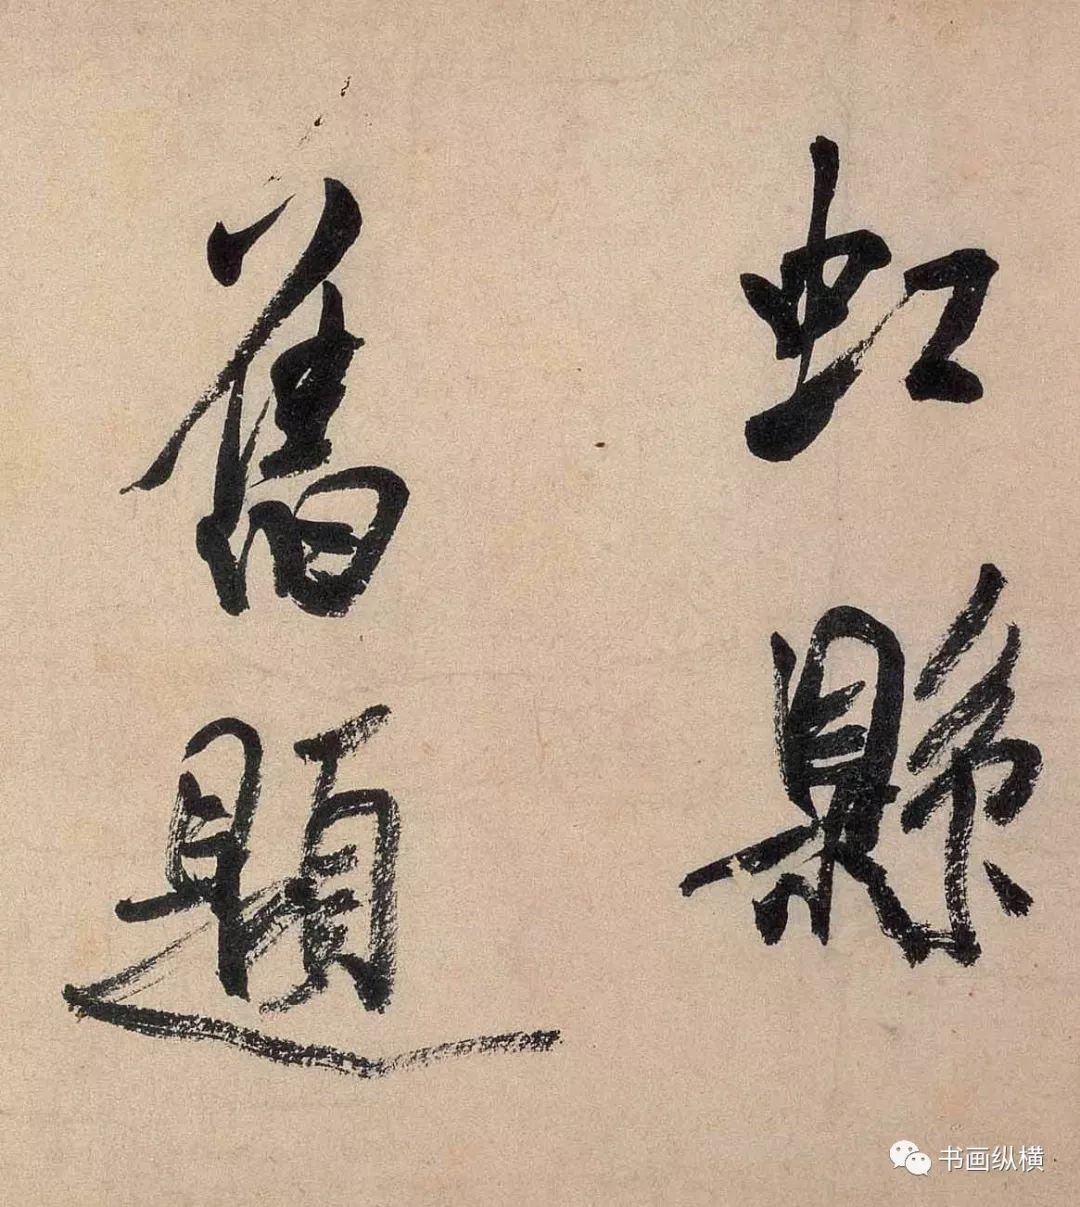 虹縣
舊題
书画纵横